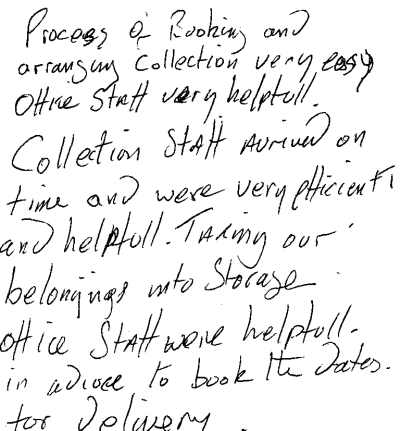 Process of Booking and
arranging Collection very easy
Office Staff very helpfull.
Collection Staff Arrived on
time and were very efficient
and helpfull. Taking our
belongings into Storage.
office Staff were helpfull.
in advice to book the dates.
for delivery.